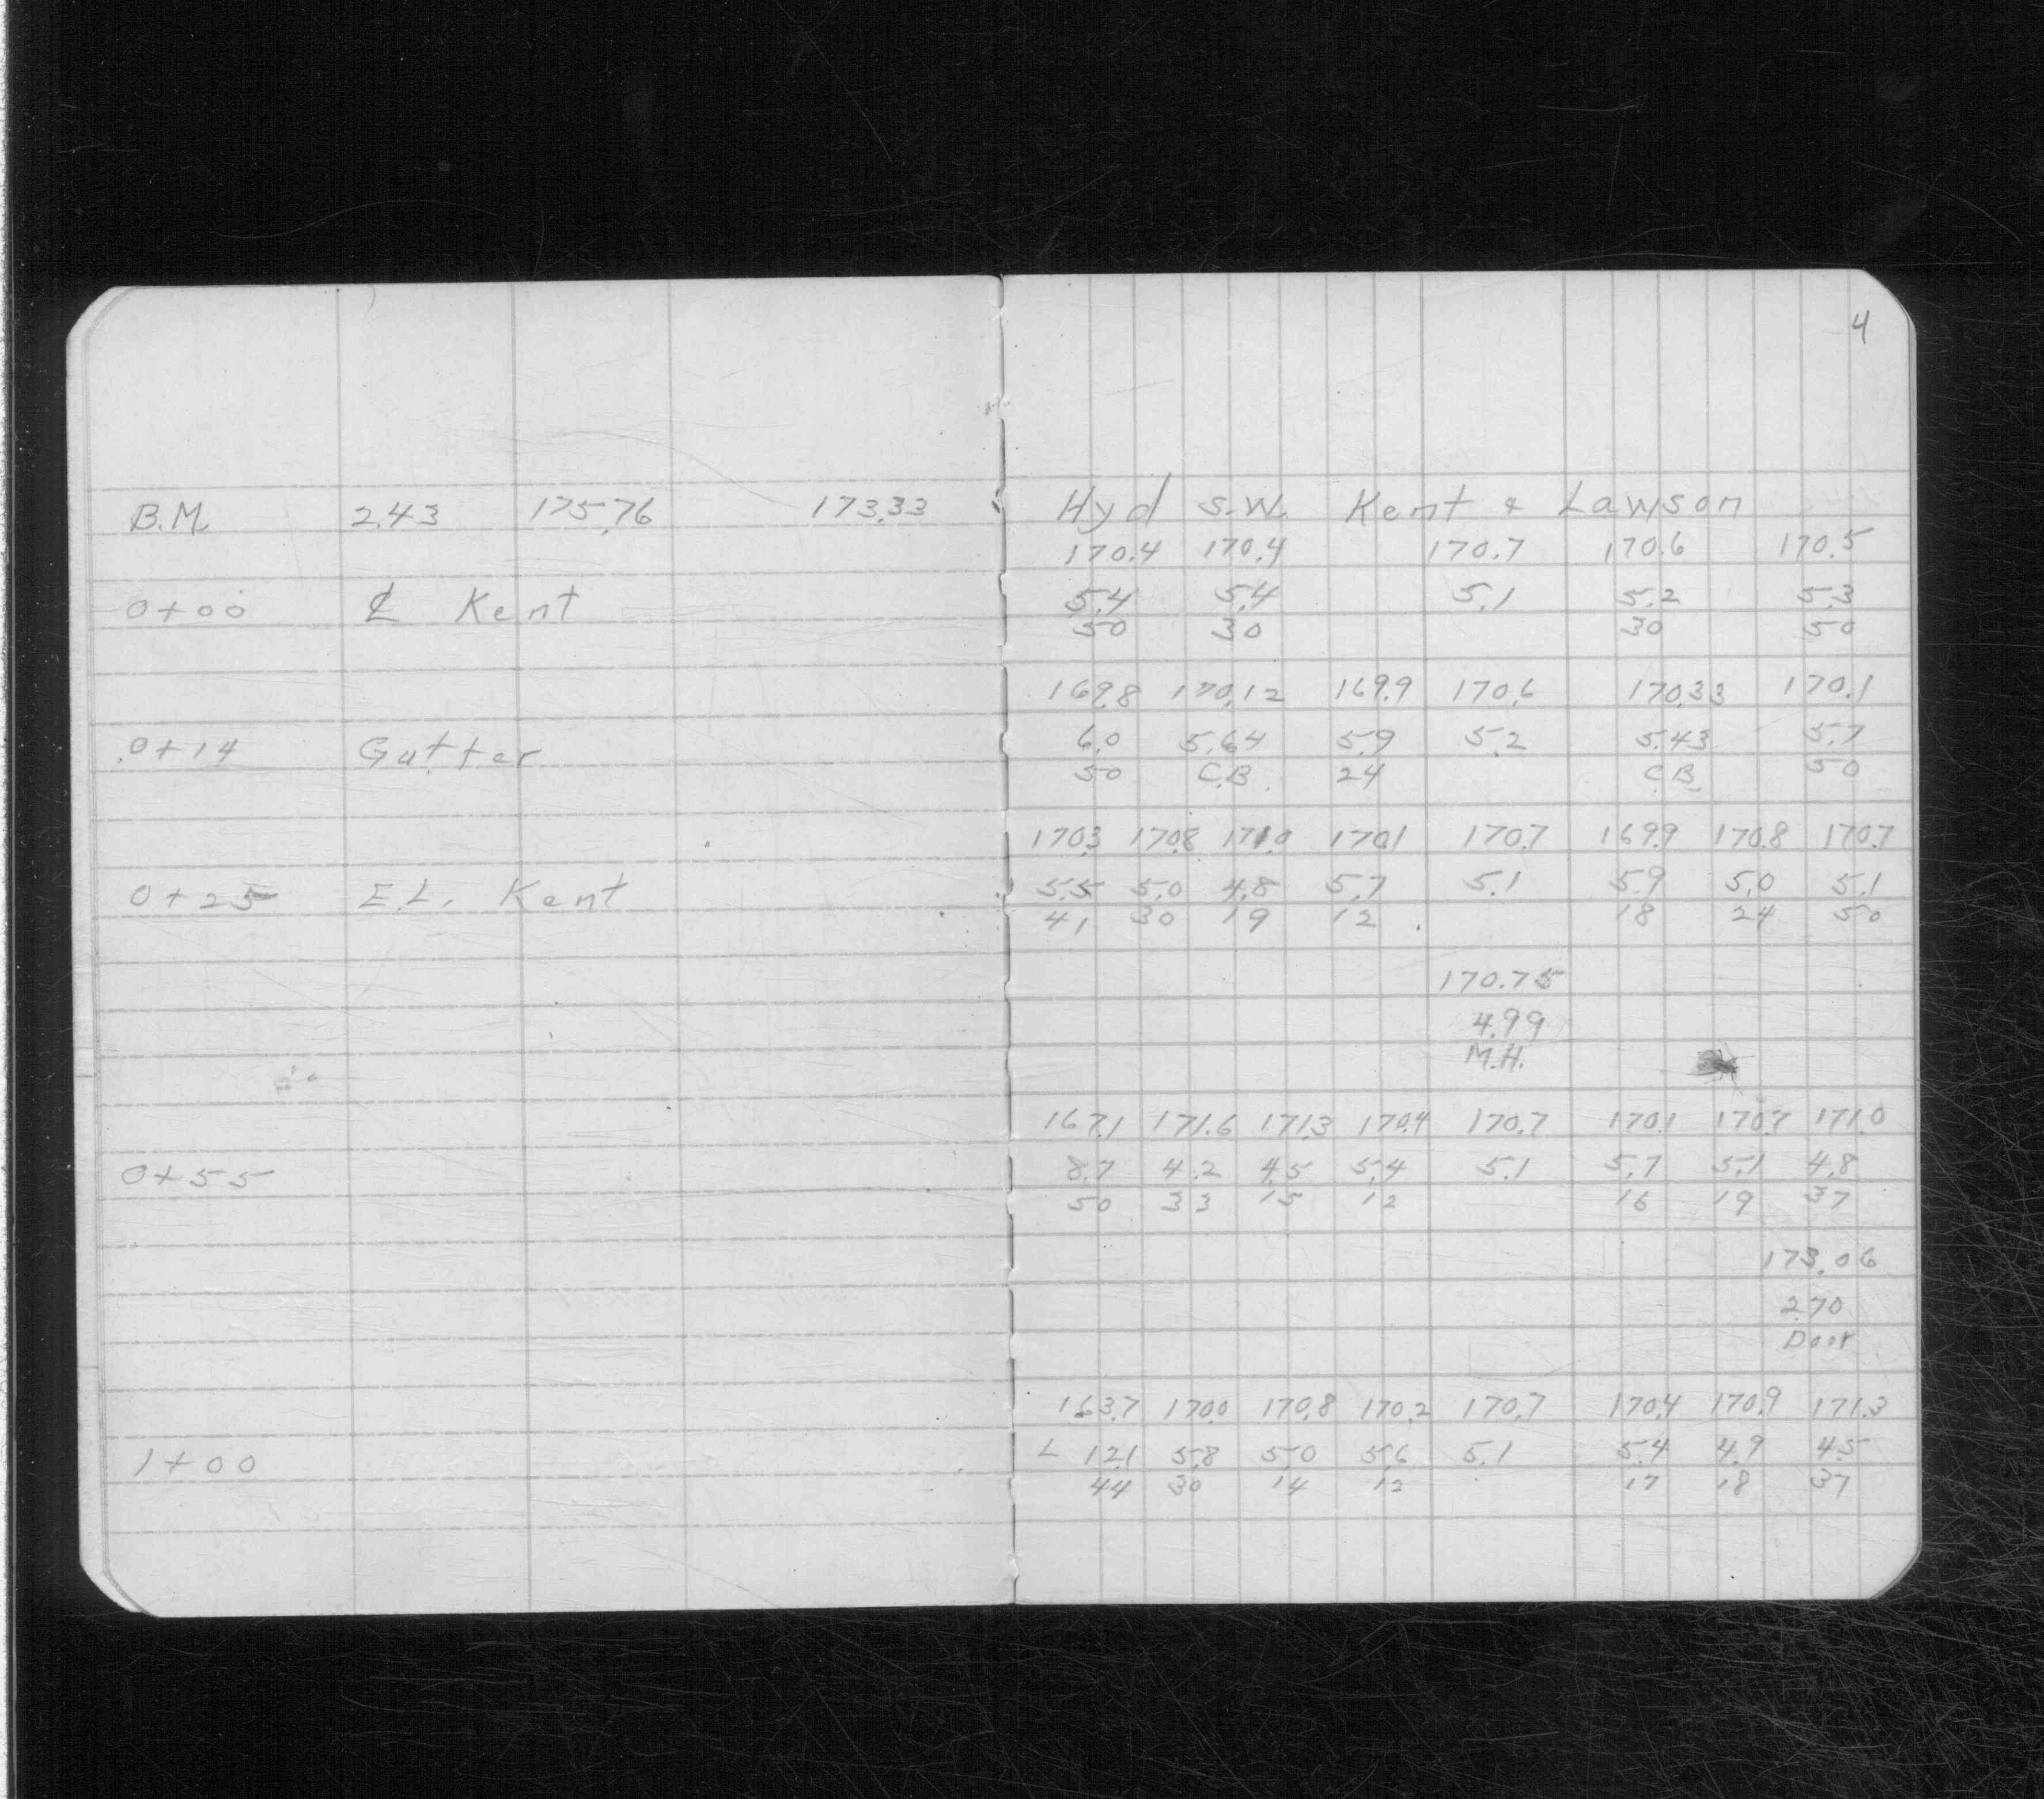 4
B.M. 2.43 175.76 173.33 Hyd S.W. Kent & Lawson
170.4 170.4 170.7 170.6 170.5
0+00 ℄ Kent 5.4 5.4 5.1 5.2 5.3
50 30 30 50
169.8 170.12 169.9 170.6 170.33 170.1
0+14 Gutter 6.0 5.64 5.9 5.2 5.43 5.7
50 C.B. 24 C.B. 50
170.3 170.8 171.0 170.1 170.7 169.9 170.8 170.7
0+25 E.L. Kent 5.5 5.0 4.8 5.7 5.1 5.9 5.0 5.1
41 30 19 12 18 24 50
170.75
4.99
M.H.
167.1 171.6 171.3 170.4 170.7 170.1 170.7 171.0
0+55 8.7 4.2 4.5 5.4 5.1 5.7 5.1 4.8
50 33 15 12 16 19 37
173.06
2.70
Door
163.7 170.0 170.8 170.2 170.7 170.4 170.9 171.3
1+00 L 12.1 5.8 5.0 5.6 5.1 5.4 4.9 4.5
44 30 14 12 17 18 37